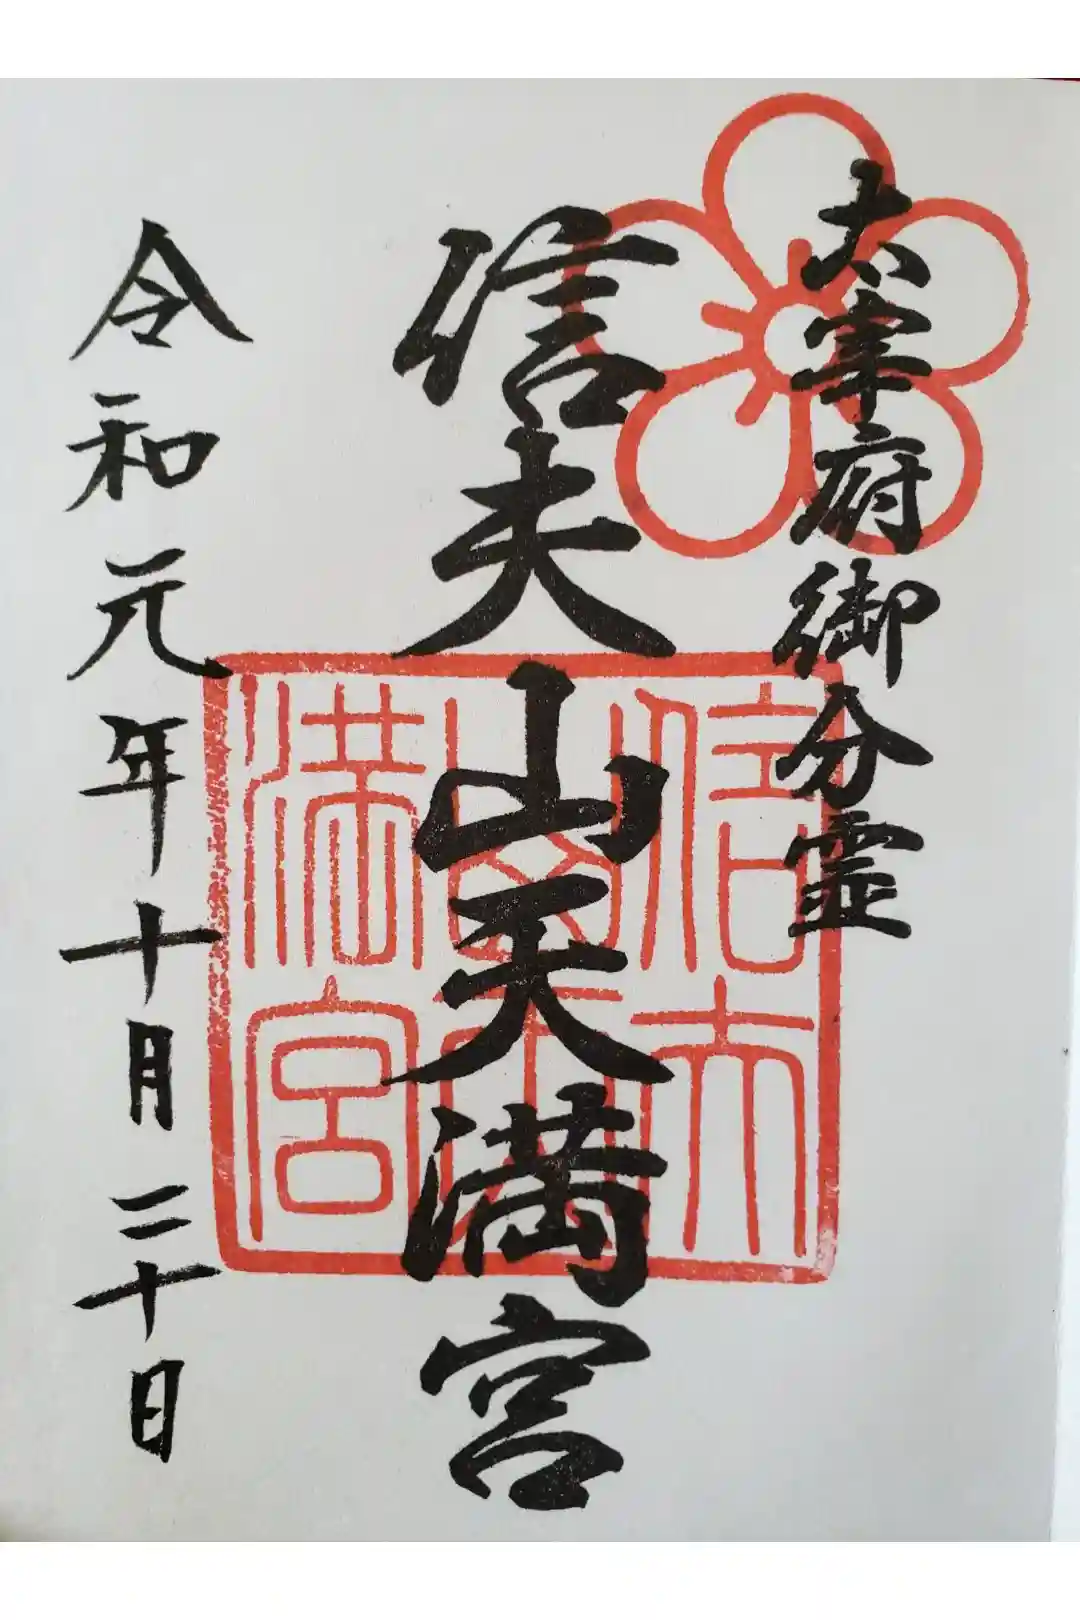 太宰府御分霊
信夫山天満宮
令和元年十月二十日
信夫山天満宮